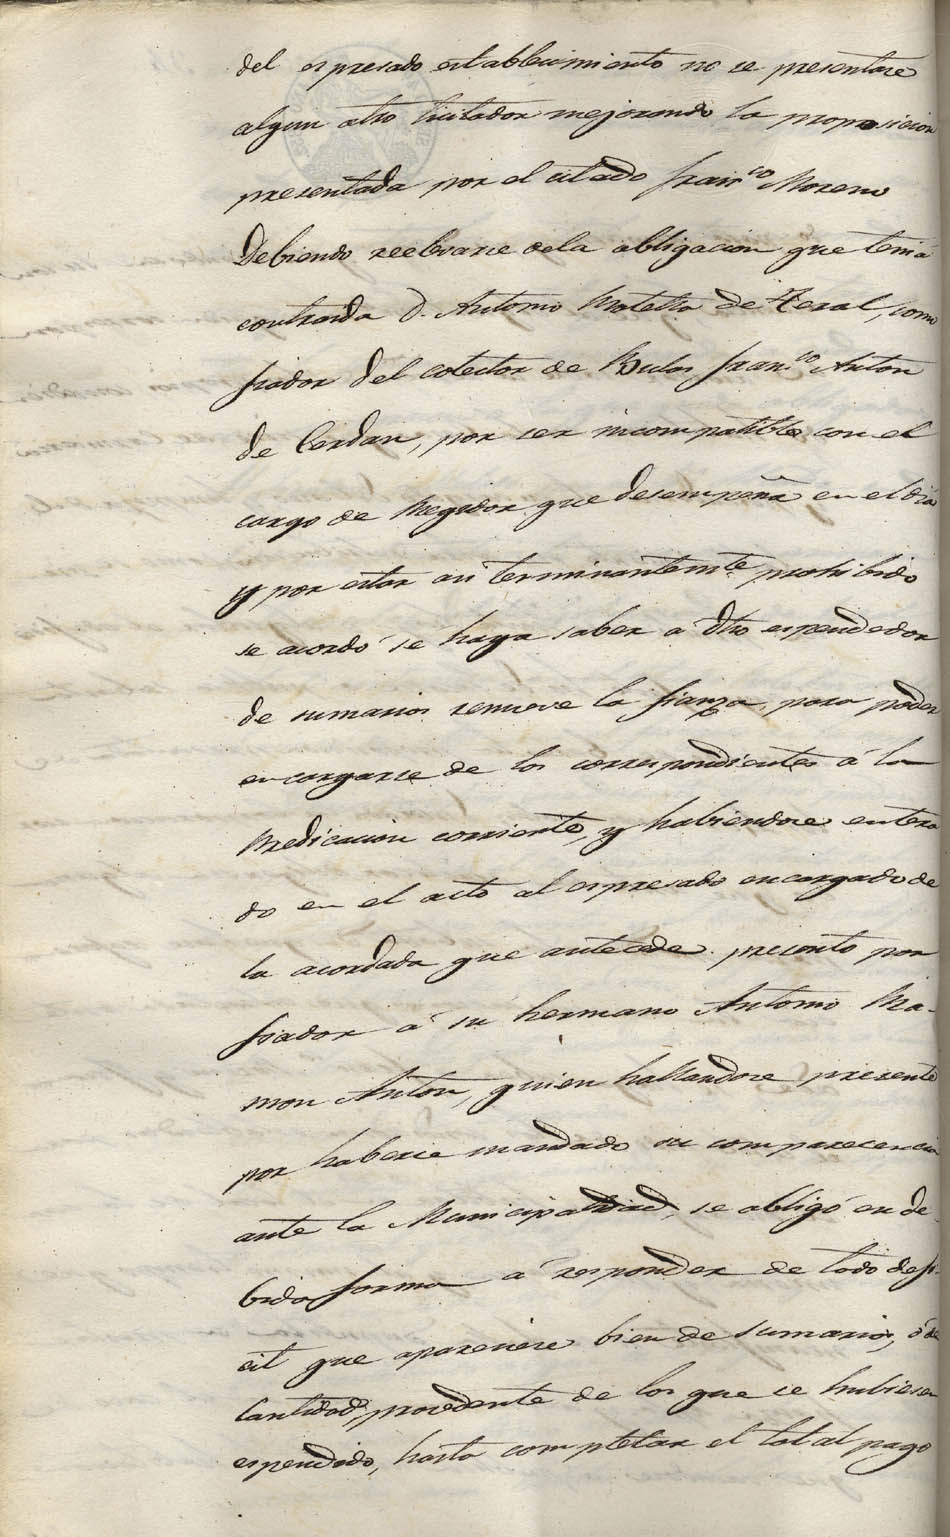 del espresado establecimiento no se presentare
algun otro licitador mejorando la proposicion
presentada por el citado Franco Moreno
Debiendo reelevarse dela obligacion que tenia
contraida D. Antonio Motella de Teral, como
fiador del colector de Bulas Franco Anton
de Cerdan, por ser incompatible con el
cargo de Regidor que desempeña en el dia
y por estar asi terminantemte prohibido
se acordó se haga saber a dho espendedor
de sumarios renueve la fianza, para poder
encargarse de los correspondientes á la
Predicacion corriente, y habiendose entera
do en el acto al espresado encargado de
la acordada que antecede presentó por
fiador á su hermano Antonio Ra-
mon Anton, quien hallandose presente
por haberse mandado su comparecencia
ante la Municipalidad, se obligó en de-
bida forma á responder de todo defi-
cit que apareciere bien de sumarios, ó de
cantidad procedente de los que se hubiesen
espendido, hasta completar el total pago